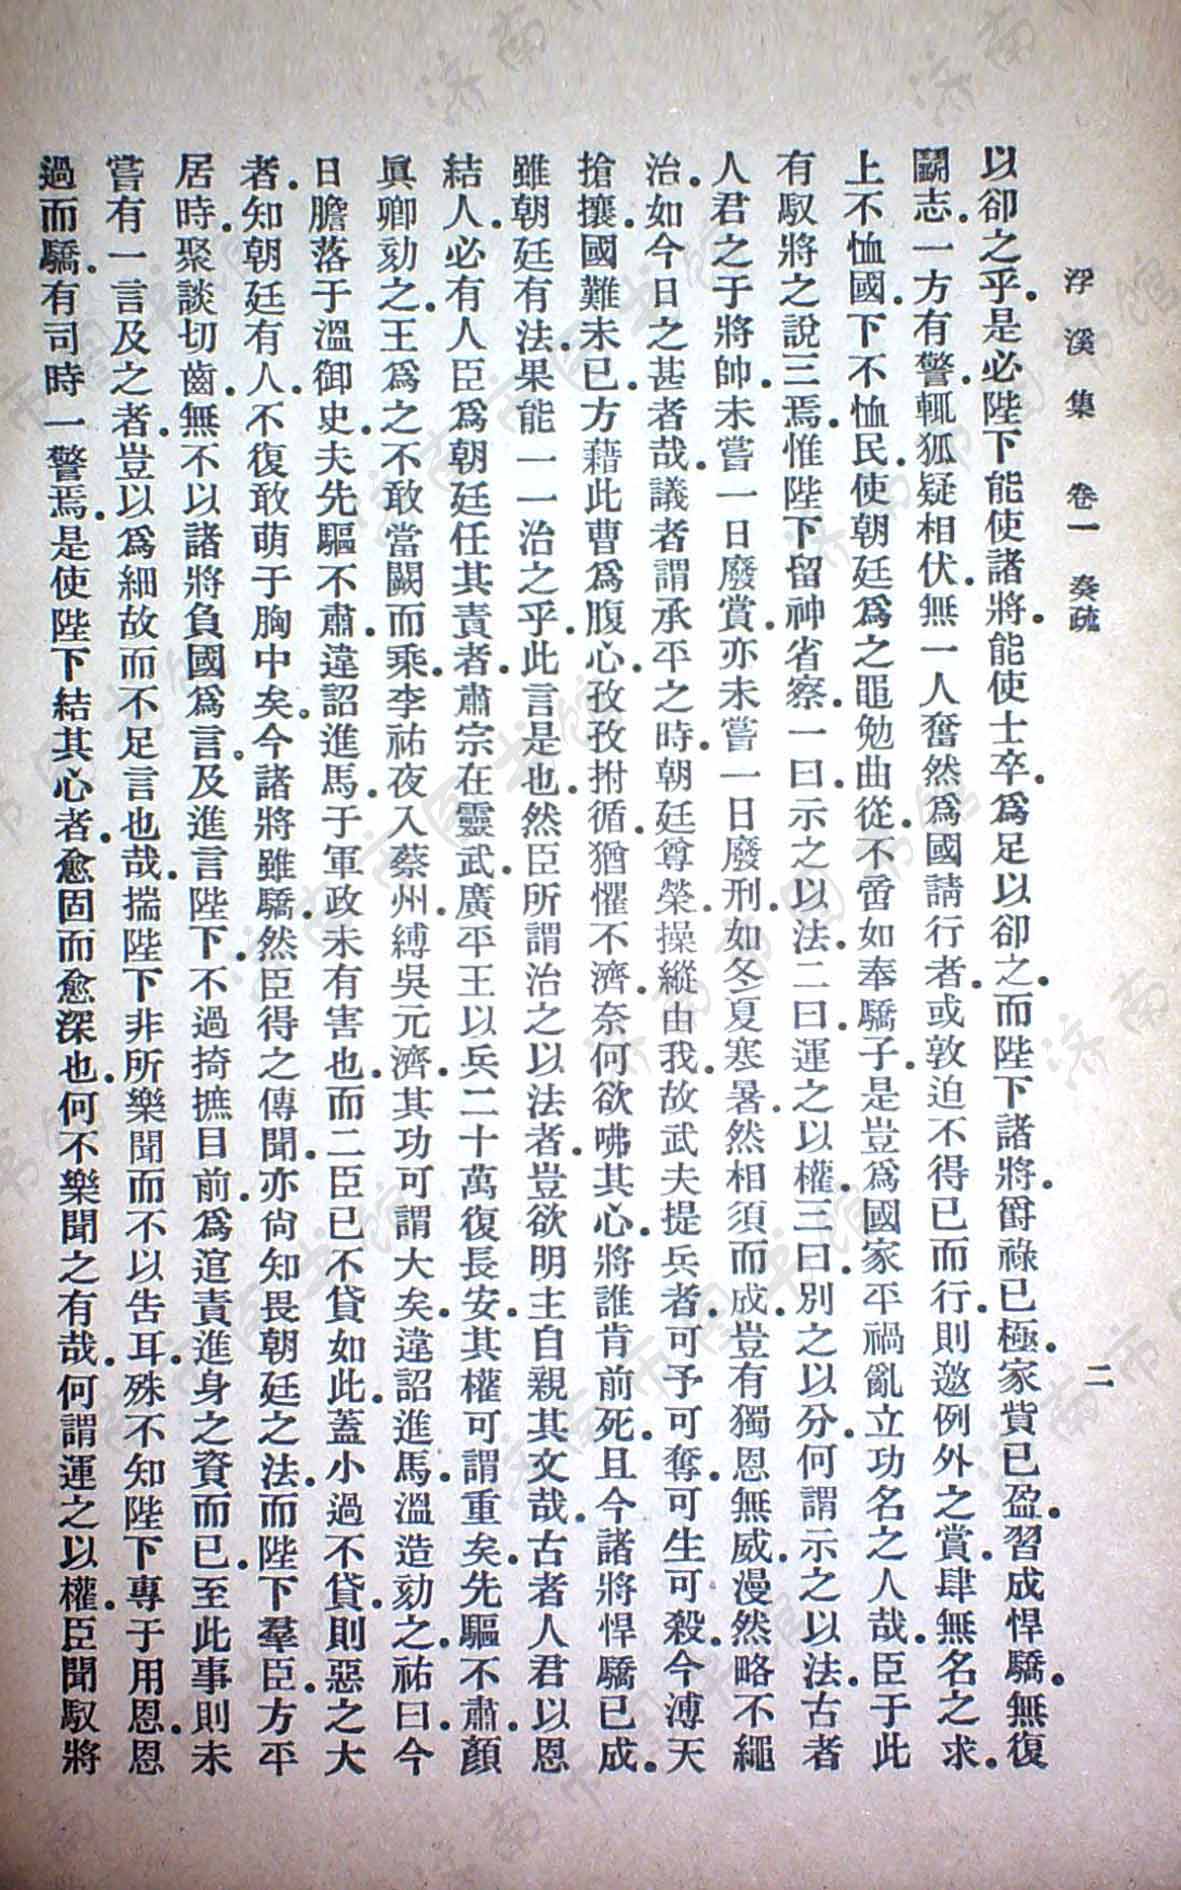 浮溪集　卷一　奏疏　二
以卻之乎。是必陛下能使諸將。能使士卒。爲足以卻之。而陛下諸將。爵祿已極。家貲已盈。習成悍驕。無復
鬭志。一方有警。輒狐疑相伏。無一人奮然爲國請行者。或敦迫不得已而行。則邀例外之賞。肆無名之求。
上不恤國。下不恤民。使朝廷爲之黽勉曲從。不啻如奉驕子。是豈爲國家平禍亂立功名之人哉。臣于此
有馭將之說三焉。惟陛下留神省察。一曰示之以法。二曰運之以權。三曰別之以分。何謂示之以法。古者
人君之于將帥。未嘗一日廢賞。亦未嘗一日廢刑。如冬夏寒暑。然相須而成。豈有獨恩無威。漫然略不繩
治。如今日之甚者哉。議者謂承平之時。朝廷尊榮。操縱由我。故武夫提兵者。可予可奪。可生可殺。今溥天
搶攘。國難未已。方藉此曹爲腹心。孜孜拊循。猶懼不濟。奈何欲咈其心。將誰肯前死。且今諸將悍驕已成。
雖朝廷有法。果能一一治之乎。此言是也。然臣所謂治之以法者。豈欲明主自親其文哉。古者人君以恩
結人。必有人臣爲朝廷任其責者。肅宗在靈武。廣平王以兵二十萬復長安。其權可謂重矣。先驅不肅。顏
眞卿劾之。王爲之不敢當闕而乘。李祐夜入蔡州。縛吳元濟。其功可謂大矣。違詔進馬。溫造劾之。祐曰。今
日膽落于溫御史。夫先驅不肅。違詔進馬。于軍政未有害也。而二臣已不貸如此。蓋小過不貸。則惡之大
者。知朝廷有人。不復敢萌于胸中矣。今諸將雖驕。然臣得之傳聞。亦尙知畏朝廷之法。而陛下羣臣。方平
居時。聚談切齒。無不以諸將負國爲言。及進言陛下。不過掎摭目前。爲逭責進身之資而已。至此事則未
嘗有一言及之者。豈以爲細故而不足言也哉。揣陛下非所樂聞而不以告耳。殊不知陛下專于用恩。恩
過而驕。有司時一警焉。是使陛下結其心者。愈固而愈深也。何不樂聞之有哉。何謂運之以權。臣聞馭將